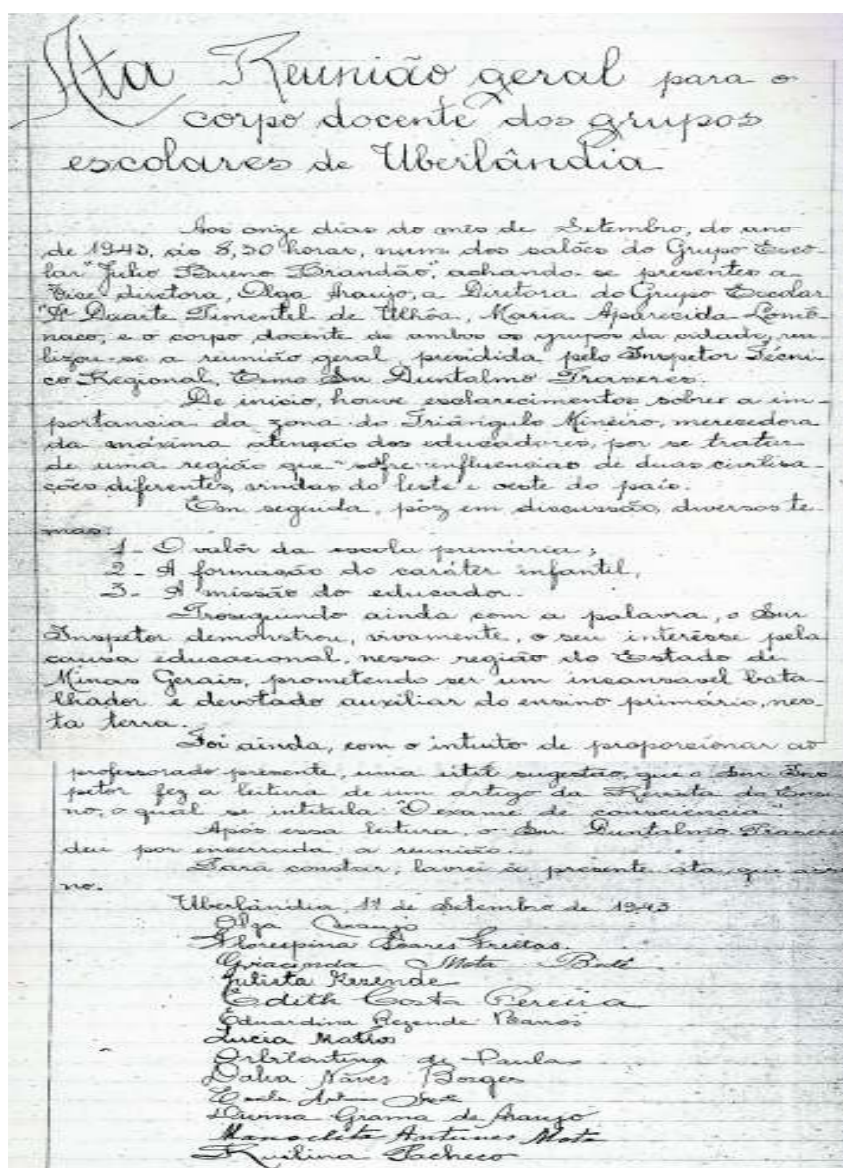 Ata Reunião geral para o
corpo docente dos grupos
escolares de Uberlândia
Aos onze dias do mês de Setembro, do ano
de 1943, às 8,30 horas, num dos salões do Grupo Esco-
lar "Julio Bueno Brandão", achando-se presentes a
diretora, Olga Araujo, a Diretora do Grupo Escolar
Duarte Pimentel de Ulhôa, Maria Aparecida
e o corpo docente de ambos os grupos da cidade, rea
lizou-se a reunião geral, presidida pelo Inspetor Técni-
co Regional, Exmo Snr Duntalmo Prazeres.
De inicio, houve esclarecimentos sobre a im-
portancia da zona do Triângulo Mineiro, merecedora
da máxima atenção dos educadores, por se tratar
de uma região que sofre influencias de duas civilisa-
ções diferentes, vindas do leste e oeste do país.
Em seguida, pôz em discussão, diversos te-
mas:
1- O valôr da escola primária;
2- A formação do caráter infantil,
3- A missão do educador.
Prosseguindo ainda com a palavra, o Snr
Inspetor demonstrou, vivamente, o seu interêsse pela
causa educacional, nessa região do Estado de
Minas Gerais, prometendo ser um incansavel bata-
lhador e devotado auxiliar do ensino primário, nes-
ta terra.
Foi ainda, com o intuito de proporcionar ao
professorado presente, uma util sugestão, que o Snr Ins
petor fez a leitura de um artigo da Revista do Ensi
no, o qual se intitula "O exame de consciencia".
Após essa leitura, o Snr Duntalmo Prazeres
deu por encerrada a reunião.
Para constar, lavrei a presente ata, que assi
no.
Uberlândia, 11 de Setembro de 1943
Olga Araujo
Florespina Soares Freitas.
Mota
Julieta Rezende
Edith Costa Pereira
Eduardina Rezende Barros
Lucia Mattos
de Paula
Dalva Naves Borges
Divina Grama de Araujo
Antunes Mota
Pacheco